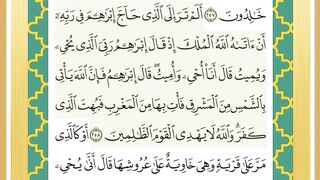 خَٰلِدُونَ ٢٥٧ أَلَمۡ تَرَ إِلَى ٱلَّذِي حَآجَّ إِبۡرَٰهِـۧمَ فِي رَبِّهِۦٓ
أَنۡ ءَاتَىٰهُ ٱللَّهُ ٱلۡمُلۡكَ إِذۡ قَالَ إِبۡرَٰهِـۧمُ رَبِّيَ ٱلَّذِي يُحۡيِۦ
وَيُمِيتُ قَالَ أَنَا۠ أُحۡيِۦ وَأُمِيتُۖ قَالَ إِبۡرَٰهِـۧمُ فَإِنَّ ٱللَّهَ يَأۡتِي
بِٱلشَّمۡسِ مِنَ ٱلۡمَشۡرِقِ فَأۡتِ بِهَا مِنَ ٱلۡمَغۡرِبِ فَبُهِتَ ٱلَّذِي
كَفَرَۗ وَٱللَّهُ لَا يَهۡدِي ٱلۡقَوۡمَ ٱلظَّٰلِمِينَ ٢٥٨ أَوۡ كَٱلَّذِي
مَرَّ عَلَىٰ قَرۡيَةٖ وَهِيَ خَاوِيَةٌ عَلَىٰ عُرُوشِهَا قَالَ أَنَّىٰ يُحۡيِۦ